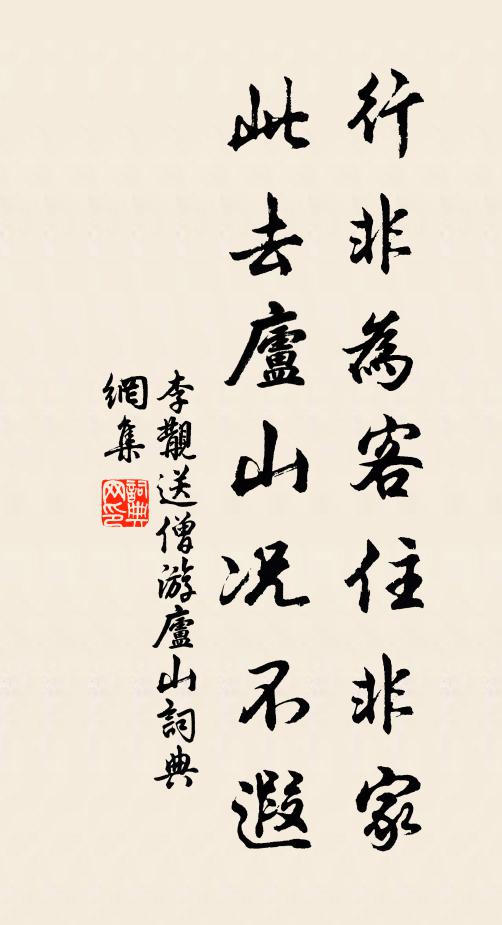 行非為客住非家
此去廬山况不遐
李覯送僧游廬山詞典
網集
詞典網印